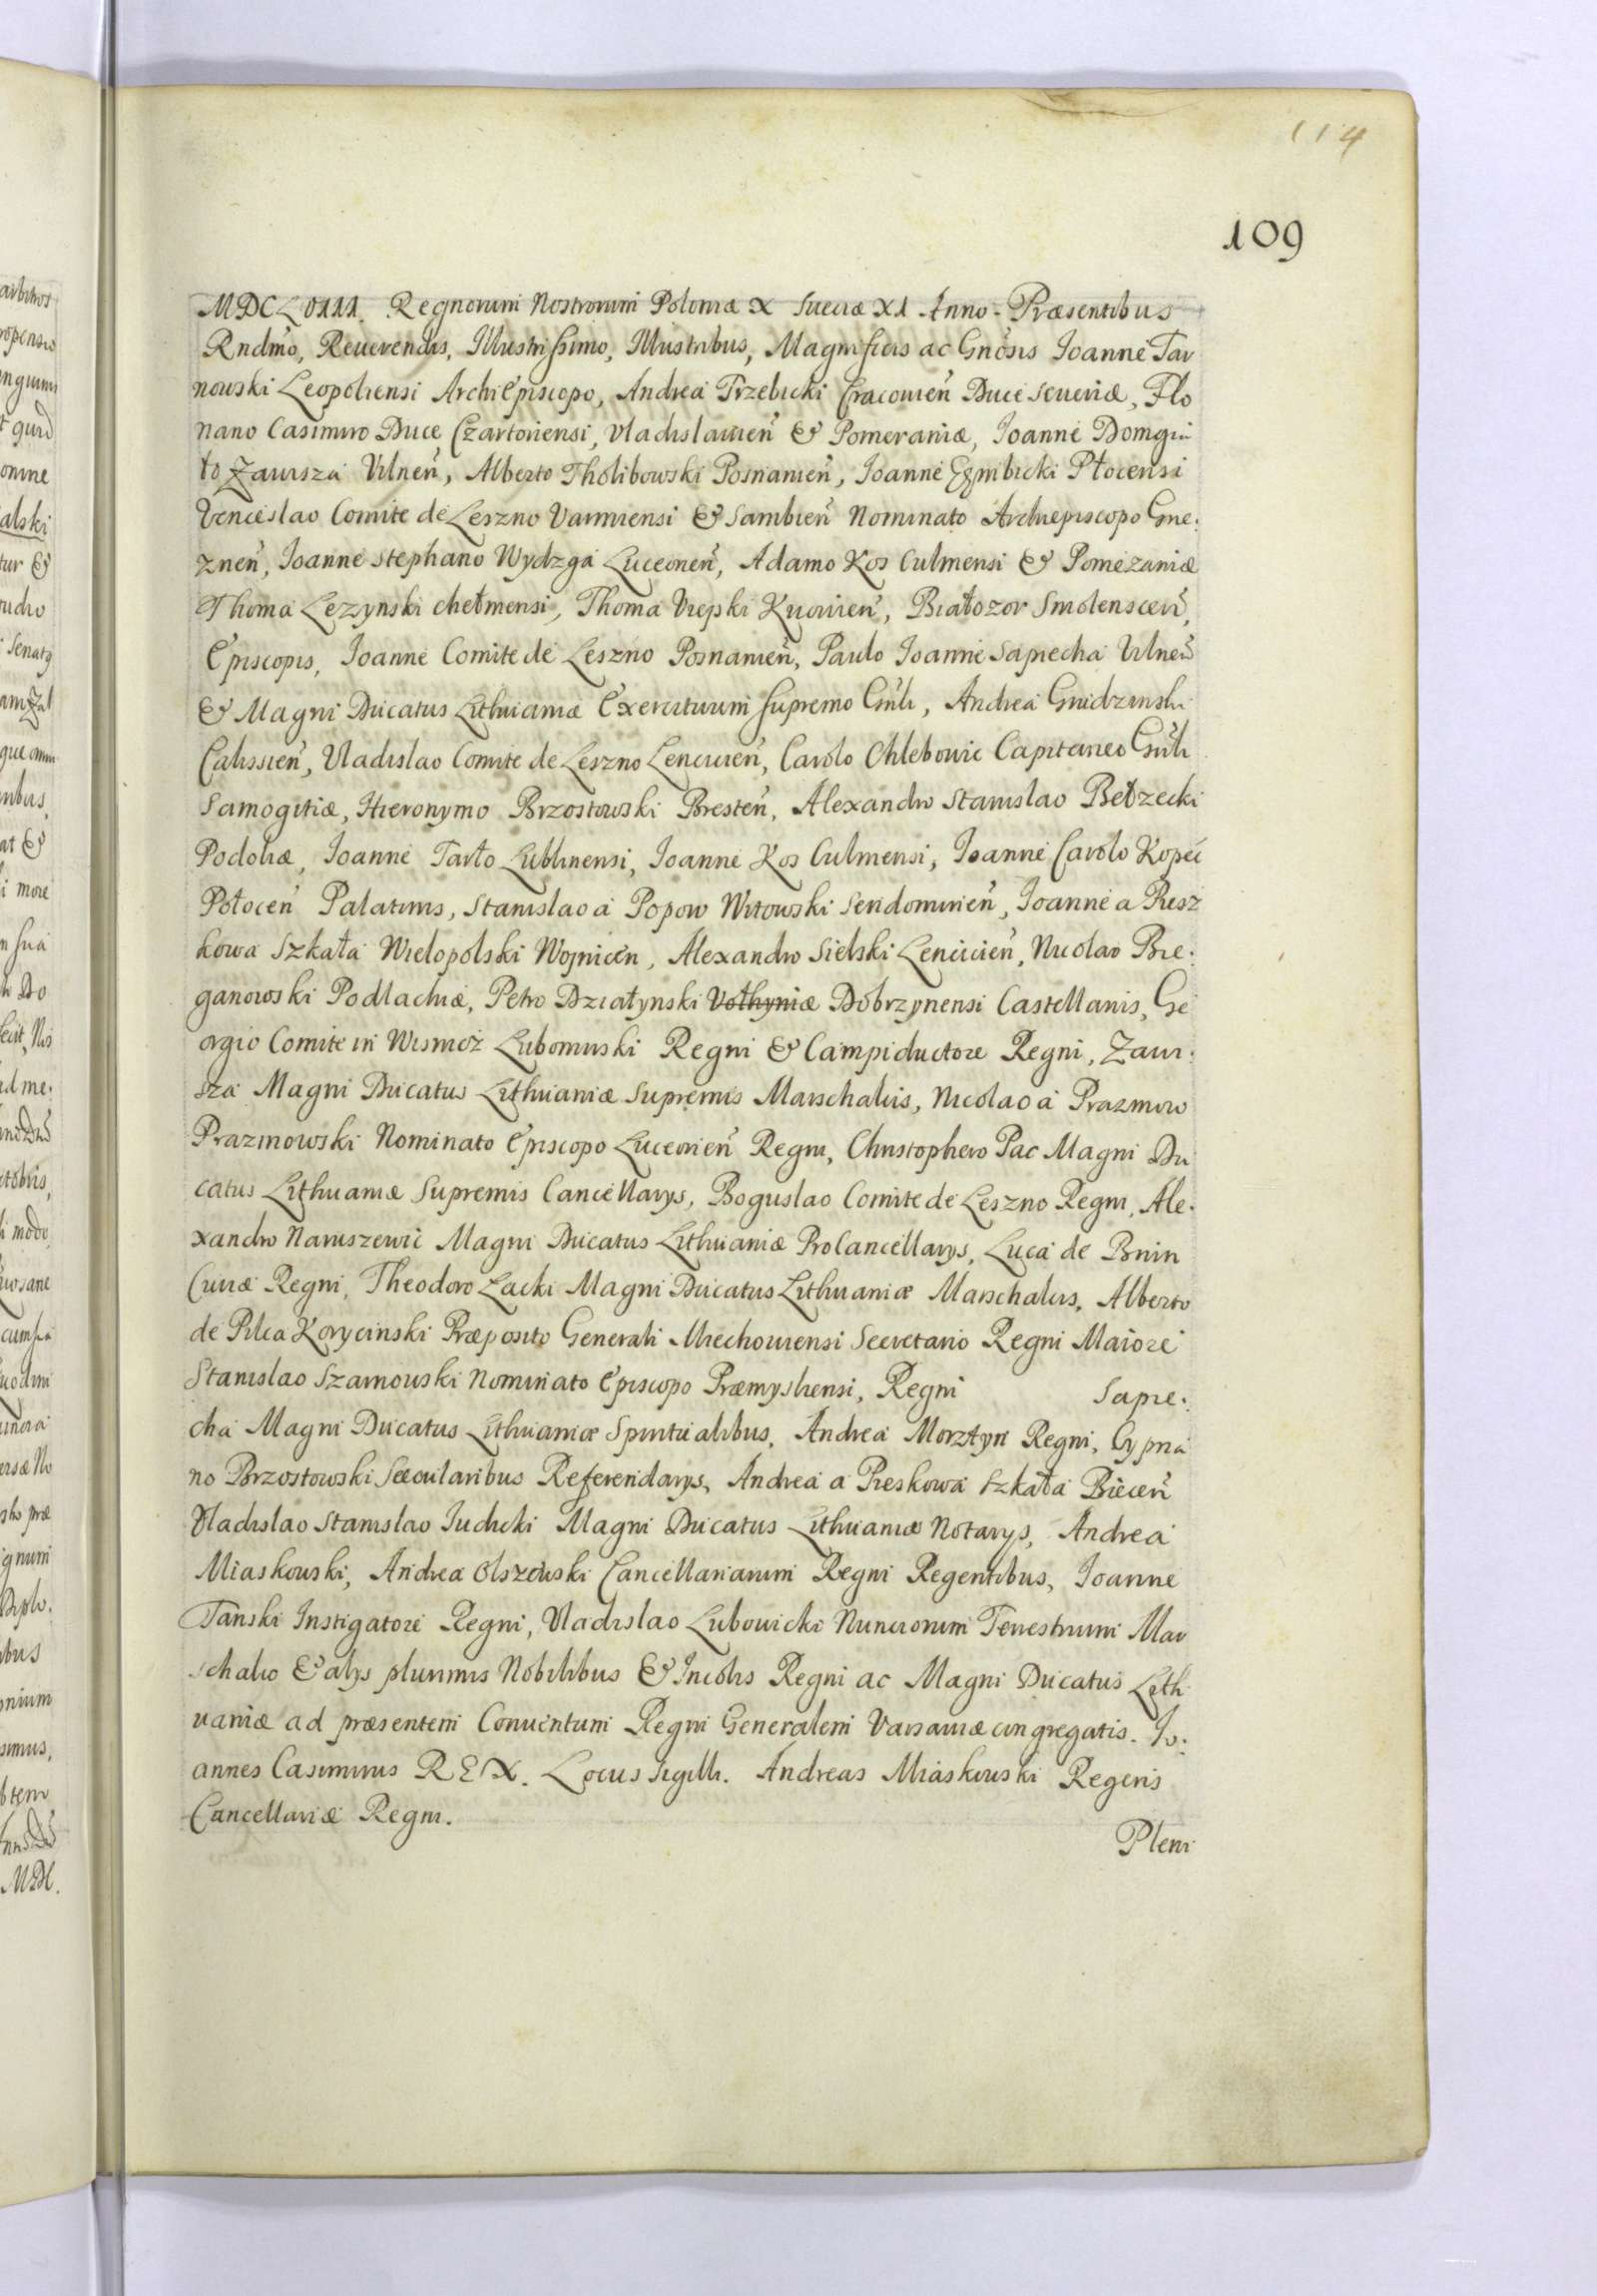 114
109
MDCLVIII. Regnorum Nostrorum Poloniæ X Sueciæ XI Anno. Præsentibus
Rndmo, Reuerendis, Illustrissimo, Illustribus, Magnificis ac Gnosis Ioanne Tar
nowski Leopoliensi ArchiEpiscopo, Andrea Trzebicki Cracouien Duce Seueriæ, Flo
riano Casimiro Duce Czartoriensi, Vladislauien & Pomeraniæ, Ioanne Domgia
to Zawisza Vilnen, Alberto Tholibowski Posnanien, Ioanne Gębicki Płocensi
Venceslao Comite de Leszno Varmiensi & Sambien Nominato Archiepiscopo Gne:
znen, Ioanne Stephano Wydzga Luceorien, Adamo Kos Culmensi & Pomezaniæ
Thoma Lezynski chełmensi, Thoma Vieyski Kiiouien, Białozor Smolenscen,
Episcopis, Ioanne Comite de Leszno Posnanien, Paulo Ioanne Sapiecha Vilnen
& Magni Ducatus Lithuaniæ Exercituum supremo Gnli, Andrea Grudzinski
Calissien, Vladislao Comite de Leszno Lencicien, Carolo Chlebowic Capitaneo Gnli
Samogitiæ, Hieronymo Brzostowski Bresten, Alexandro Stanislao Bełzecki
Podoliæ, Ioanne Tarło Lublinensi, Ioanne Kos Culmensi, Ioanne Carolo Kopeć
Połocen Palatinis, Stanislao a Popow Witowski Sendomirien, Ioanne a Piesz
kowa Szkała Wielopolski Wojnicen, Alexandro Sielski Lencicien, Nicolao Bie:
ganowski Podlachiæ, Petro Działynski Vołhyniæ Dobrzynensi Castellanis, Ge
orgio Comite in Wismoż Lubomirski Regni & Campiductore Regni, Zawi:
sza Magni Ducatus Lithuaniæ Supremis Marschalcis, Nicolao a Prazmow
Prazmowski Nominato Episcopo Luceorien Regni, Christophero Pac Magni Du
catus Lithuaniæ Supremis Cancellarys, Boguslao Comite de Leszno Regni, Ale:
xandro Naruszewic Magni Ducatus Lithuaniæ ProCancellarys, Luca de Bnin
Curiæ Regni, Theodoro Lacki Magni Ducatus Lithuaniæ Marschalcis, Alberto
de Pilca Korycinski Præposito Generali Miechouiensi Secretario Regni Maiore
Stanislao Szarnowski Nominato Episcopo Præmysliensi, Regni Sapie:
cha Magni Ducatus Lithuaniæ Spiritualibus, Andrea Morztyn Regni, Cypria
no Brzostowski Sæcularibus Referendarys, Andrea a Pieskowa Szkała Biecen
Vladislao Stanislao Iudicki Magni Ducatus Lithuaniæ Notarys, Andrea
Miaskowski, Andrea Olszewski Cancellariarum Regni Regentibus, Ioanne
Tanski Instigatore Regni, Vladislao Lubowicki Nunciorum Terrestrium Mar
schalco & alys plurimis Nobilibus & Incolis Regni ac Magni Ducatus Lith
uaniæ ad præsentem Conuentum Regni Generalem Varsauiæ congregatis. Io:
annes Casimirus REX. Locus Sigilli. Andreas Miaskowski Regens
Cancellariæ Regni.
Pleni